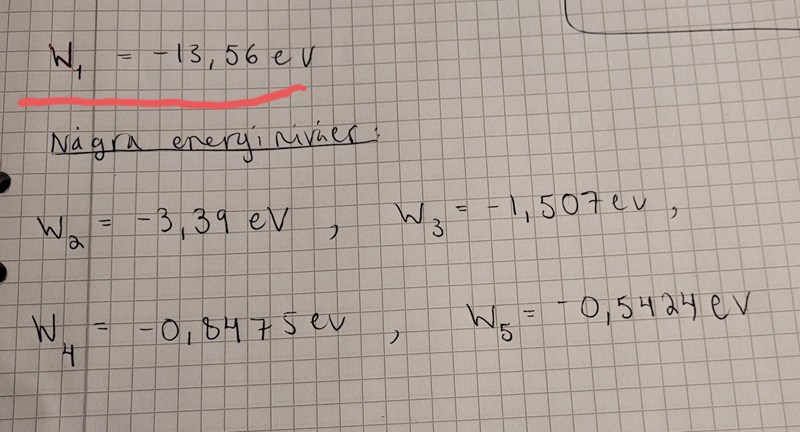 W₁ = -13,56 eV
Några energinivåer:
W₂ = -3,39 eV , W₃ = -1,507 eV ,
W₄ = -0,8475 eV , W₅ = -0,5424 eV